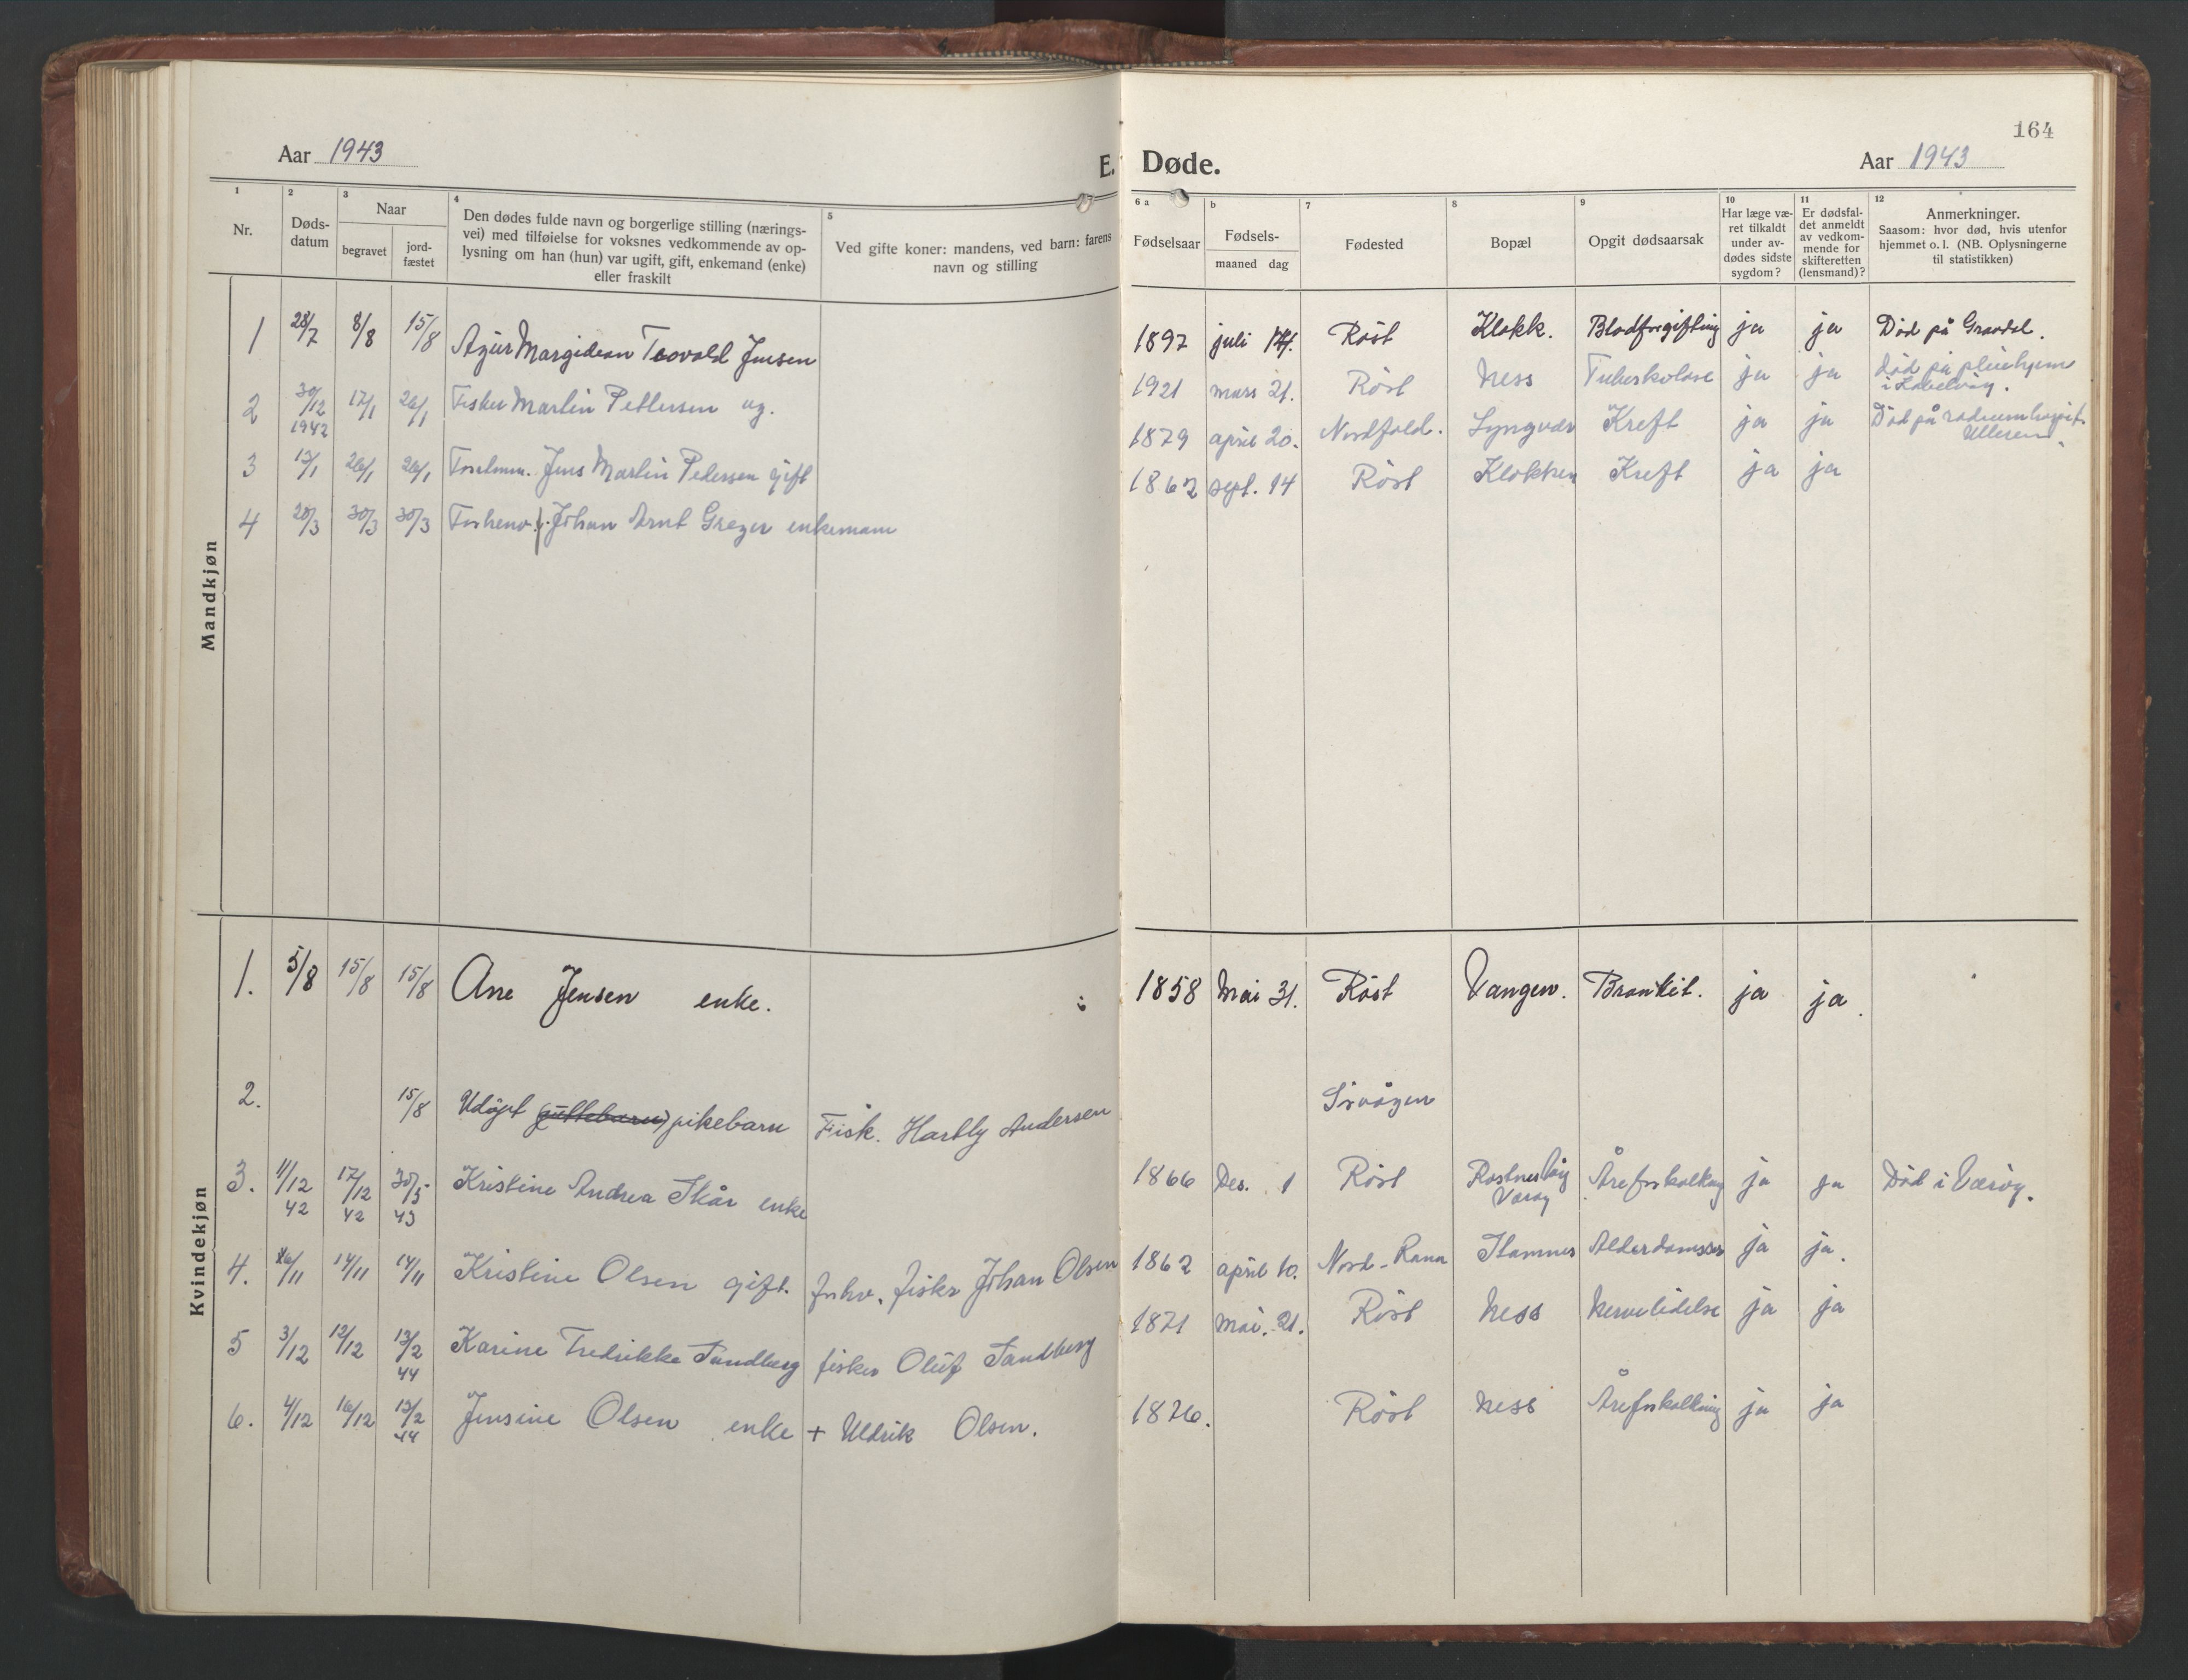 Aar 1943
E. Døde.
Aar 1943
164
1
Nr.
2
Døds-
datum
3
Naar
begravet
jord-
fæstet
4
Den dødes fulde navn og borgerlige stilling (nærings-
vei) med tilføielse for voksnes vedkommende av op-
lysning om han (hun) var ugift, gift, enkemand (enke)
eller fraskilt
5
Ved gifte koner: mandens, ved barn: farens
navn og stilling
6 a
Fødselsaar
b
Fødsels-
maaned dag
7
Fødested
8
Bopæl
9
Opgit dødsaarsak
10
Har læge væ-
ret tilkaldt
under av-
dødes sidste
sygdom?
11
Er dødsfal-
det anmeldt
av vedkom-
mende for
skifteretten
(lensmand)?
12
Anmerkninger.
Saasom: hvor død, hvis utenfor
hjemmet o. l. (NB. Oplysningerne
til statistikken)
Mandkjøn
1 28/7 8/8 15/8 Margidean Teovald Jensen 1897 juli 14. Røst Klakk. Blodforgiftning ja ja Död på Gravdal.
2 30/12 1942 17/1 26/1 Fisker Martin Pettersen ug. 1921 mars 21. Röst Ness Tuberkulose ja ja Död på pleiehjem
i Kabelvåg.
3 13/1 26/1 26/1 Jens Martin Pedersen gift 1879 april 20. Nordfold. Lyngvær Kreft ja ja Död på radiumhospit.
4 20/3 30/3 30/3 Johan Arnt Greger enkemann 1862 sept. 14 Röst Klakken Kreft ja ja
Kvindekjøn
1. 5/8 15/8 15/8 Ane Jensen enke. 1858 Mai 31. Röst Vangen. Bronkit. ja ja.
2. 15/8 Udöpt (guttebarn) pikebarn Fisk. Hartly Andersen Sörvågen
3. 11/12 42 17/12 42 30/5 43 Kristine Andrea Skår enke 1866 Des. 1 Röst Røstnesvåg
Værøy Årefrskalkng ja ja Död i Værøy.
4. 6/11 14/11 14/11 Kristine Olsen gift. fhv. fisker Johan Olsen 1862 april 10. Nord-Rana Stamnes Alderdomssv ja ja.
5 3/12 12/12 13/2 44 Karine Fredrikke Sandberg fisker Oluf Sandberg 1871 mai. 21. Röst Ness Nervelidelse ja ja
6. 4/12 16/12 13/2 44 Jensine Olsen enke + Uldrik Olsen. 1876. Röst Ness Årefrskalkning ja ja